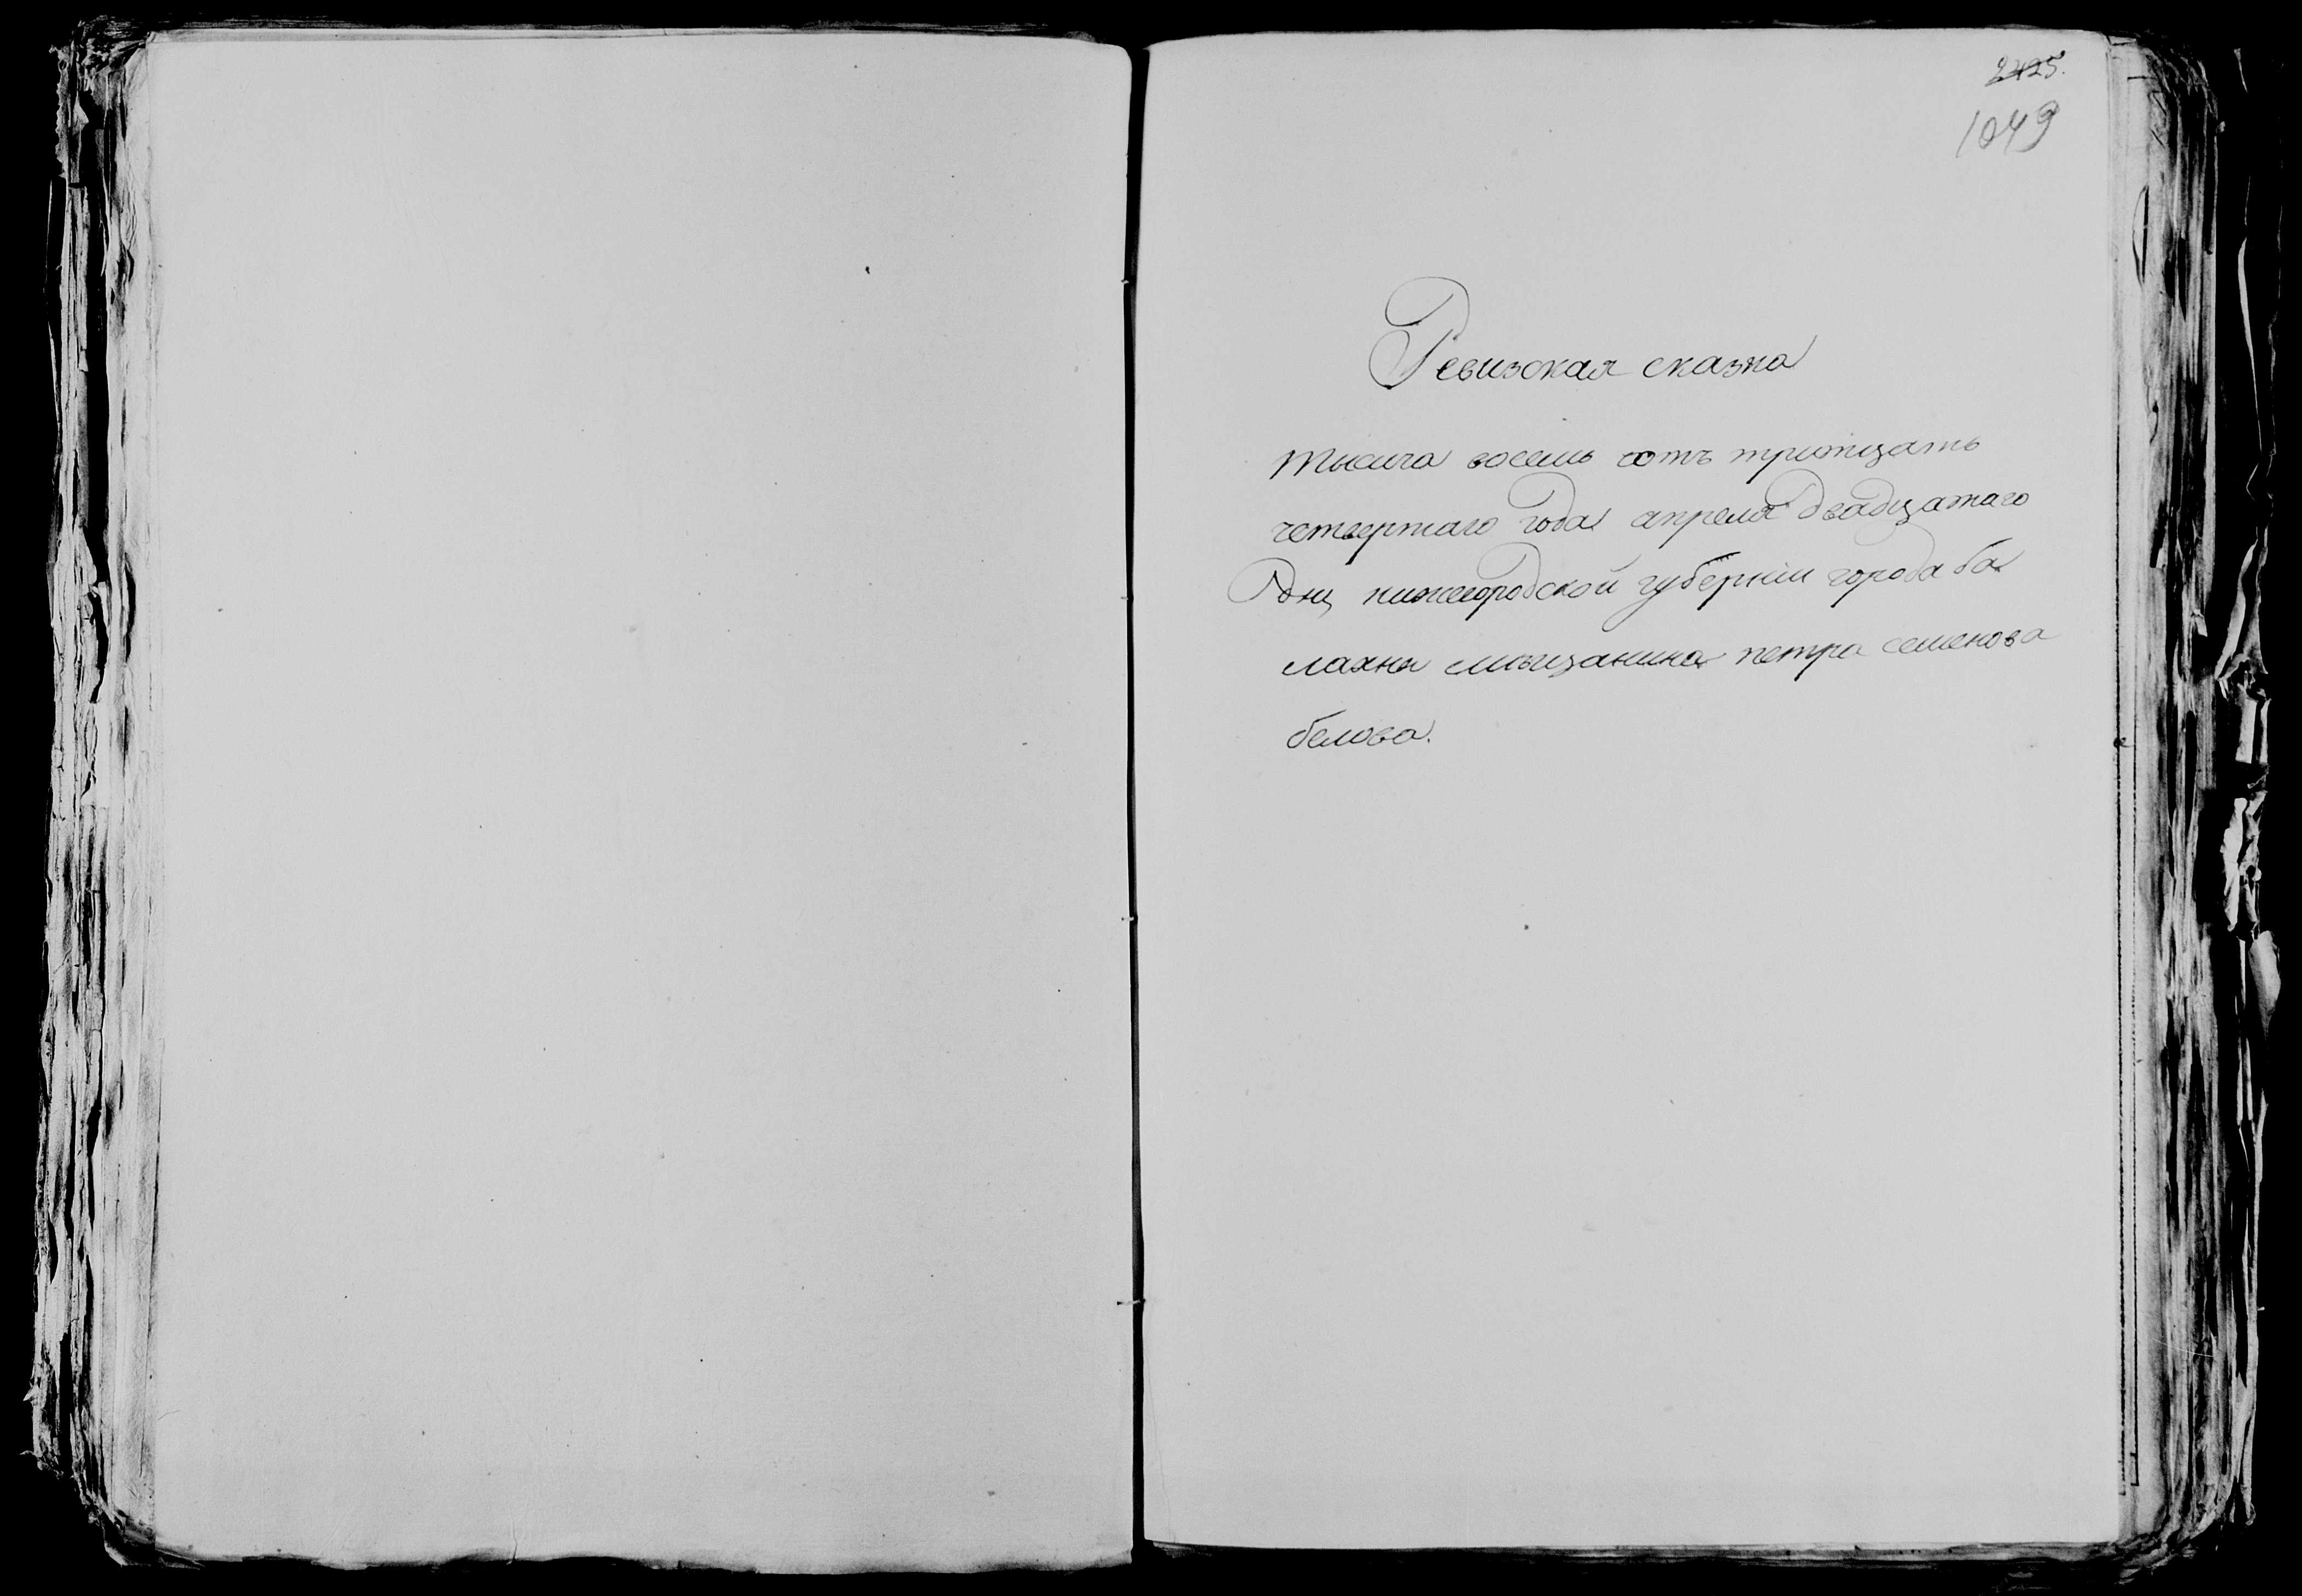 2425.
1049
Ревизская сказка
тысеча восемь сотъ тритцать
четвертаго года апреля двадцатаго
дня нижегородской губернии города ба
лахны мещанина петра семенова
белова.